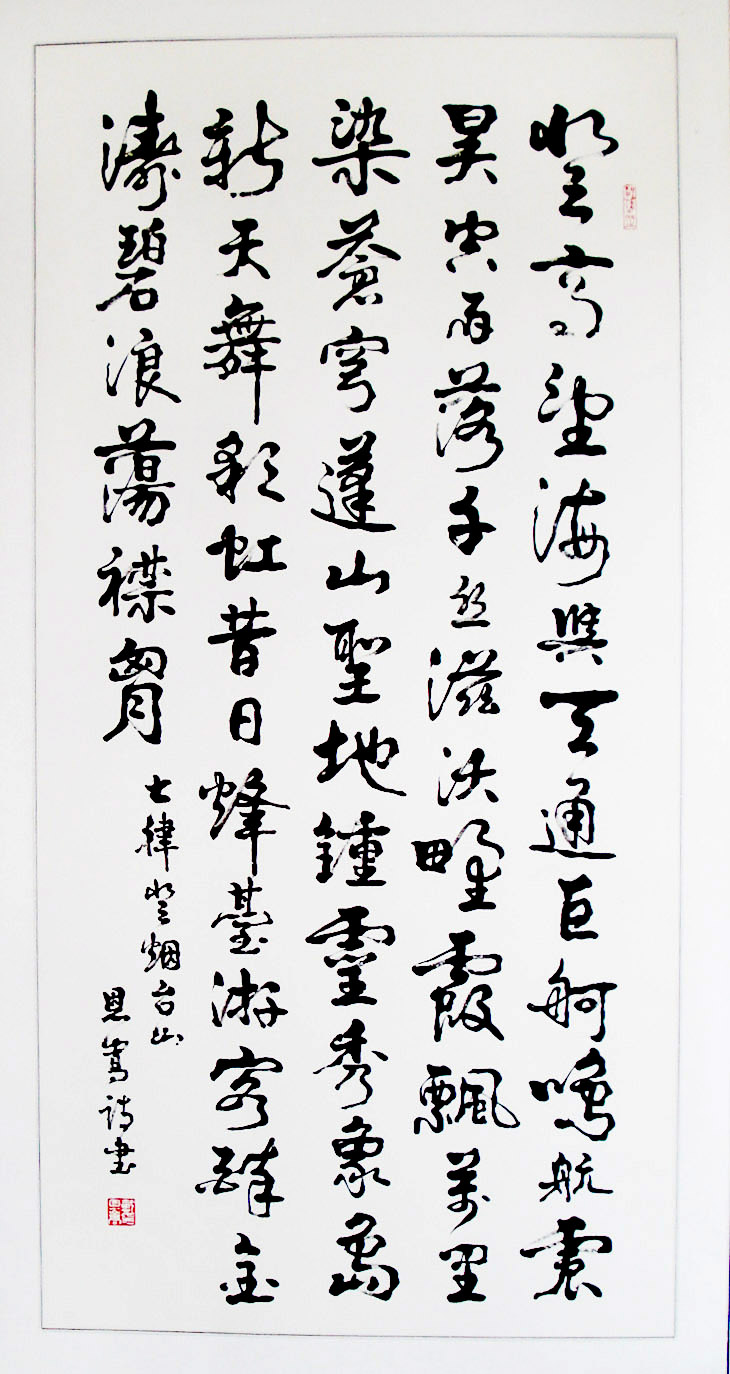 登高望海與天通巨舸鳴航震
昊空雨落千丝滋沃野霞飄萬里
染蒼穹蓬山聖地鍾靈秀象島
新天舞彩虹昔日烽臺游客醉金
濤碧浪蕩襟胷
七律登烟台山
恩嵩诗书